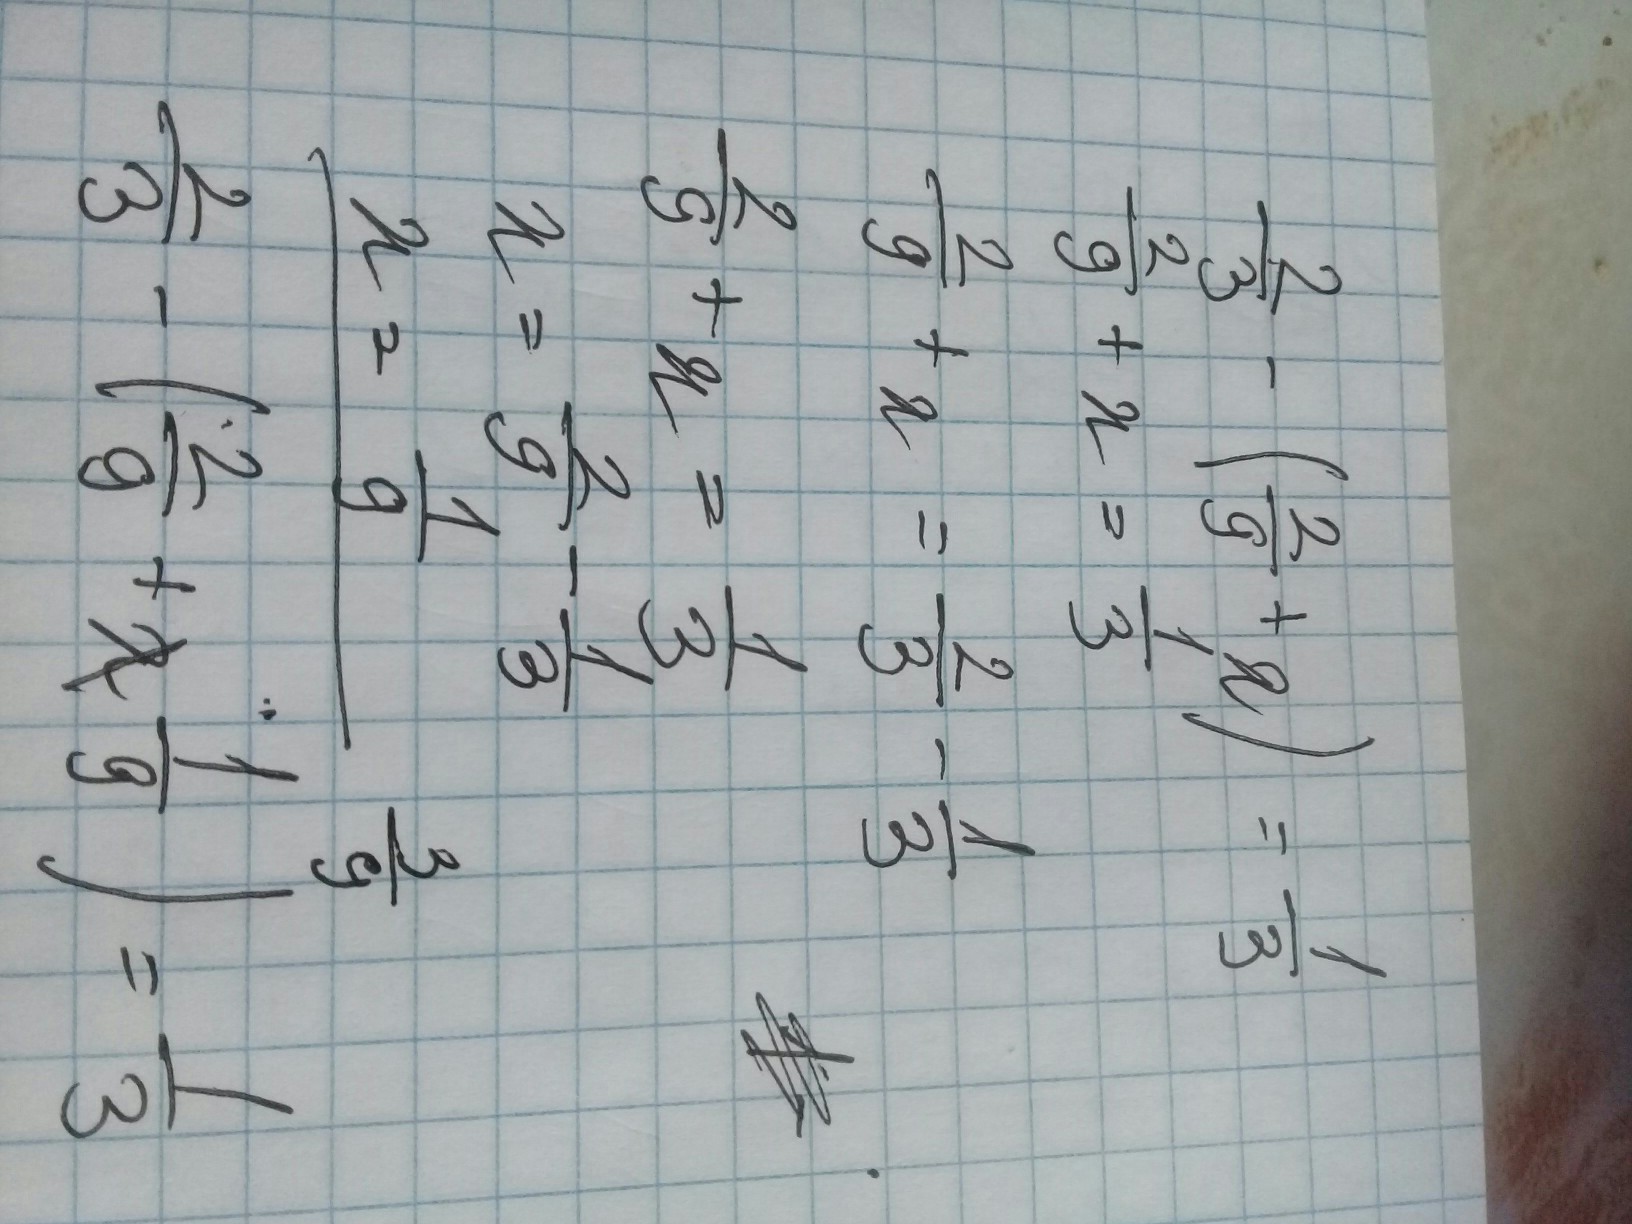 2/3 - (2/9 + x) = 1/3
2/9 + x = 1/3
2/9 + x = 2/3 - 1/3
2/9 + x = 1/3
x = 2/9 - 1/3
x = 1/9
3/9
2/3 - (2/9 + 1/9) = 1/3